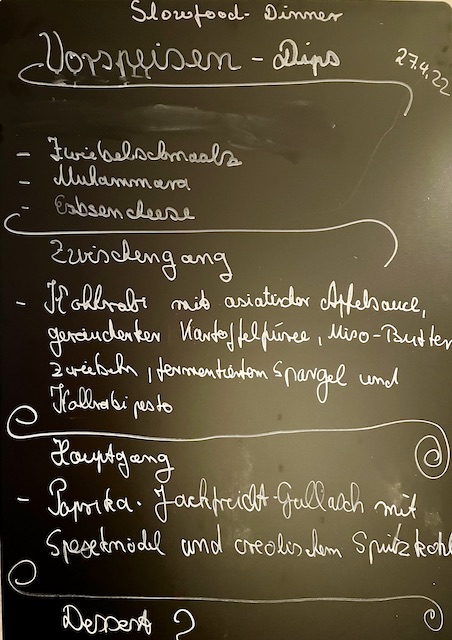 Slowfood-Dinner
Vorspeisen - Dips
27.4.22
- Zwiebelschmalz
- Muhammara
- Erbsencheese
Zwischengang
- Kohlrabi mit asiatischer Apfelsauce,
geräucherter Kartoffelpüree, Miso-Butter
zwiebeln, fermentiertem Spargel und
Kohlrabipesto
Hauptgang
- Paprika-Jackfrucht-Gullasch mit
und creolischem Spitzkohl
Dessert ?